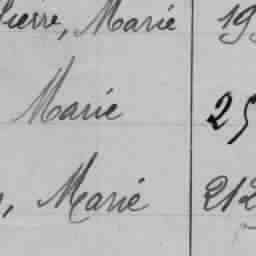 Pierre, Marie 19
Marie 25
, Marie 212